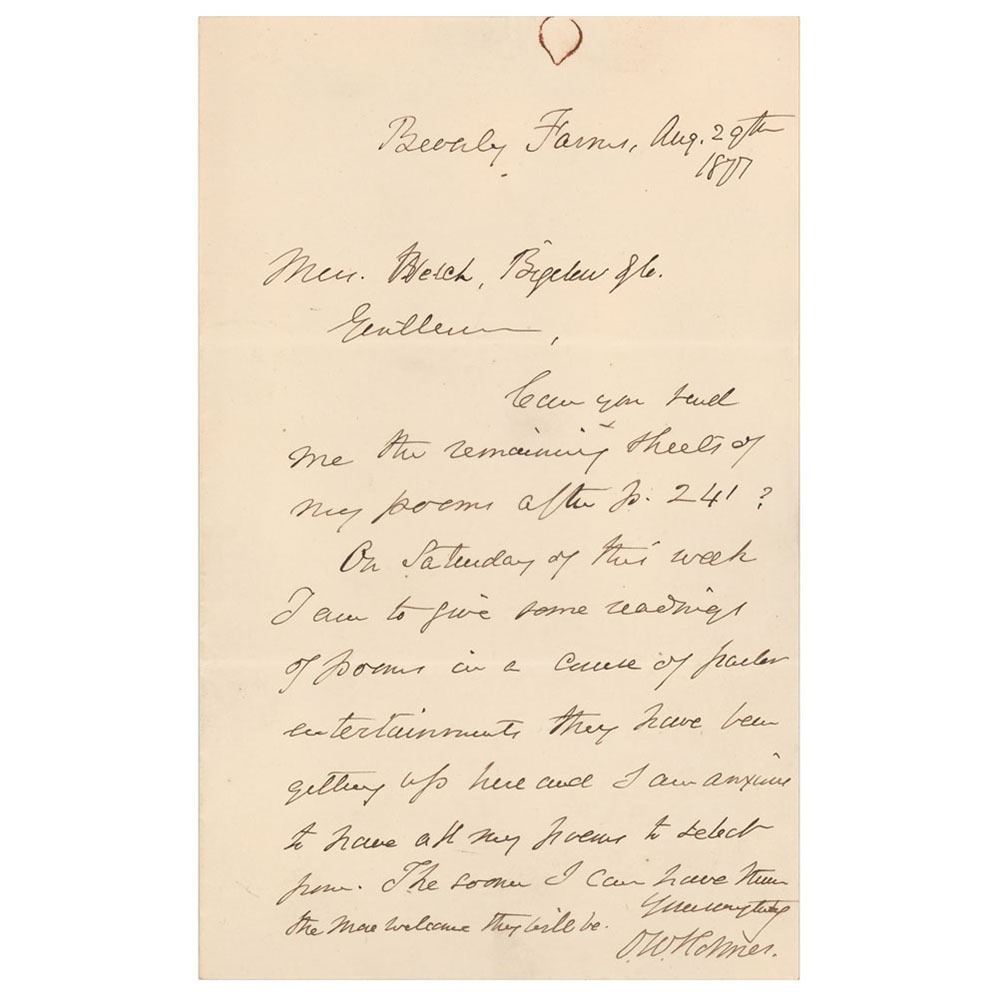 Beverly Farms, Aug. 29th
1877
Mess. Welch, Bigelow & Co.
Gentlemen,
Can you send
me the remaining sheets of
my poems after p. 241?
On Saturday of this week
I am to give some readings
of poems in a course of parlor
entertainments they have been
getting up here and I am anxious
to have all my poems to select
from. The sooner I can have them
the more welcome they will be.
Yours very truly
O. W. Holmes.